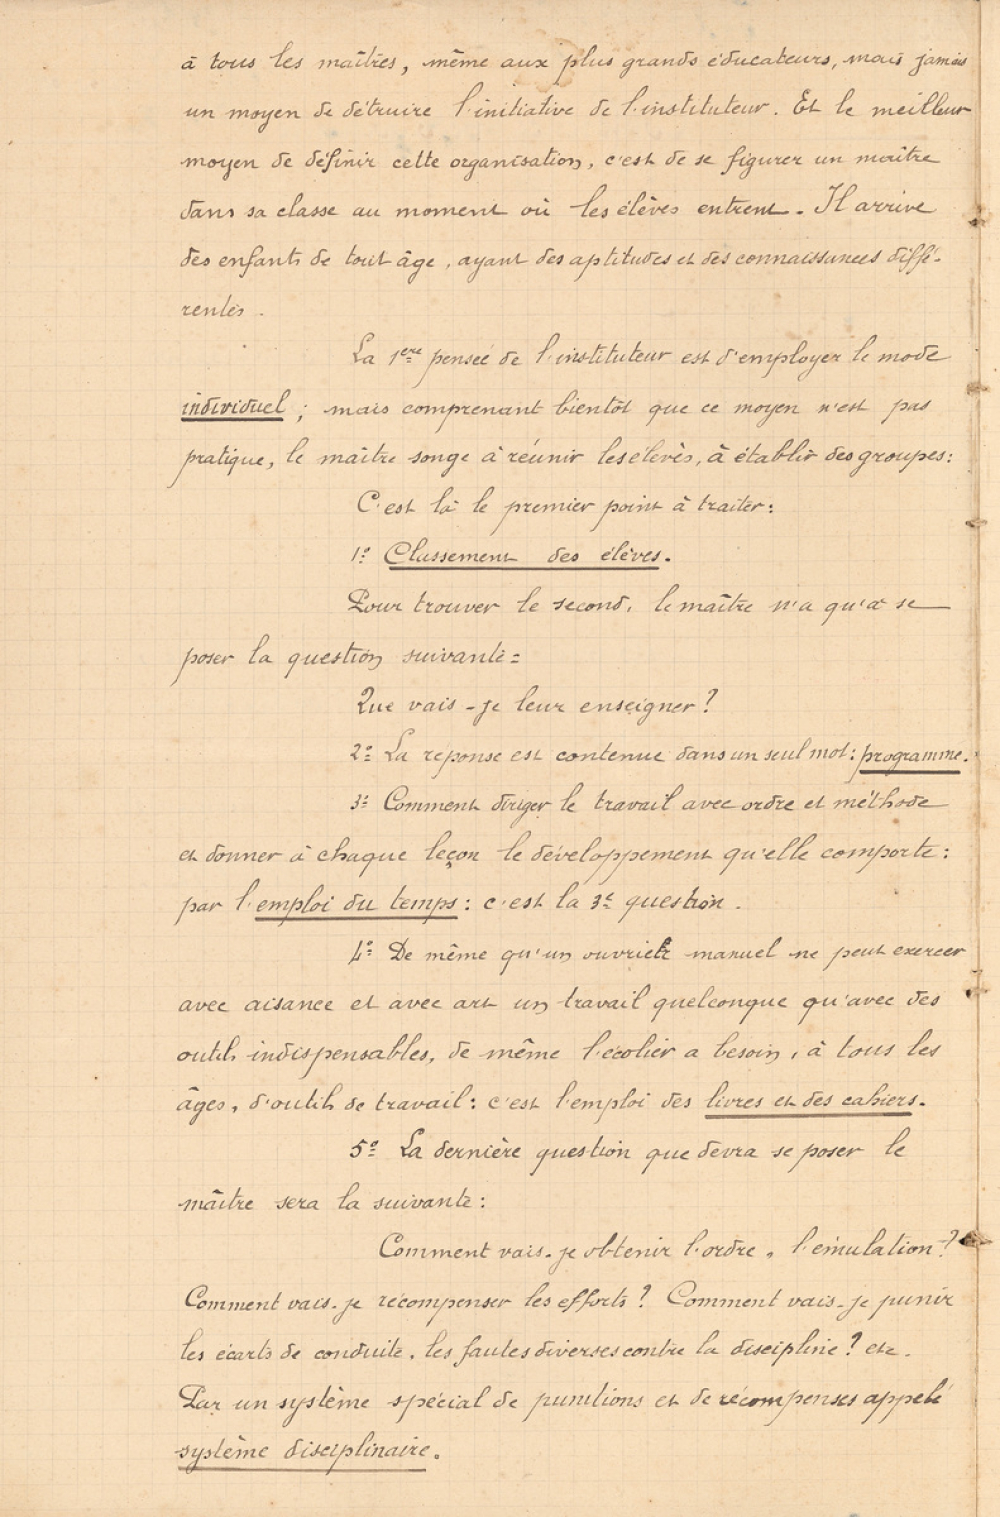 à tous les maîtres, même aux plus grands éducateurs, mais jamais
un moyen de détruire l'initiative de l'instituteur. Et le meilleur
moyen de définir cette organisation, c'est de se figurer un maître
dans sa classe au moment où les élèves entrent. Il arrive
des enfants de tout âge, ayant des aptitudes et des connaissances diffé-
rentes.
La 1ère pensée de l'instituteur est d'employer le mode
individuel ; mais comprenant bientôt que ce moyen n'est pas
pratique, le maître songe à réunir les élèves, à établir des groupes :
C'est là le premier point à traiter :
1º Classement des élèves.
Pour trouver le second, le maître n'a qu'à se
poser la question suivante :
Que vais-je leur enseigner ?
2º La réponse est contenue dans un seul mot : programme.
3º Comment diriger le travail avec ordre et méthode
et donner à chaque leçon le développement qu'elle comporte :
par l'emploi du temps : c'est la 3e question.
4º De même qu'un ouvrier manuel ne peut exercer
avec aisance et avec art un travail quelconque qu'avec des
outils indispensables, de même l'écolier a besoin, à tous les
âges, d'outils de travail : c'est l'emploi des livres et des cahiers.
5º La dernière question que devra se poser le
maître sera la suivante :
Comment vais-je obtenir l'ordre, l'émulation ?
Comment vais-je récompenser les efforts ? Comment vais-je punir
les écarts de conduite, les fautes diverses contre la discipline ? etc.
Par un système spécial de punitions et de récompenses appelé
système disciplinaire.